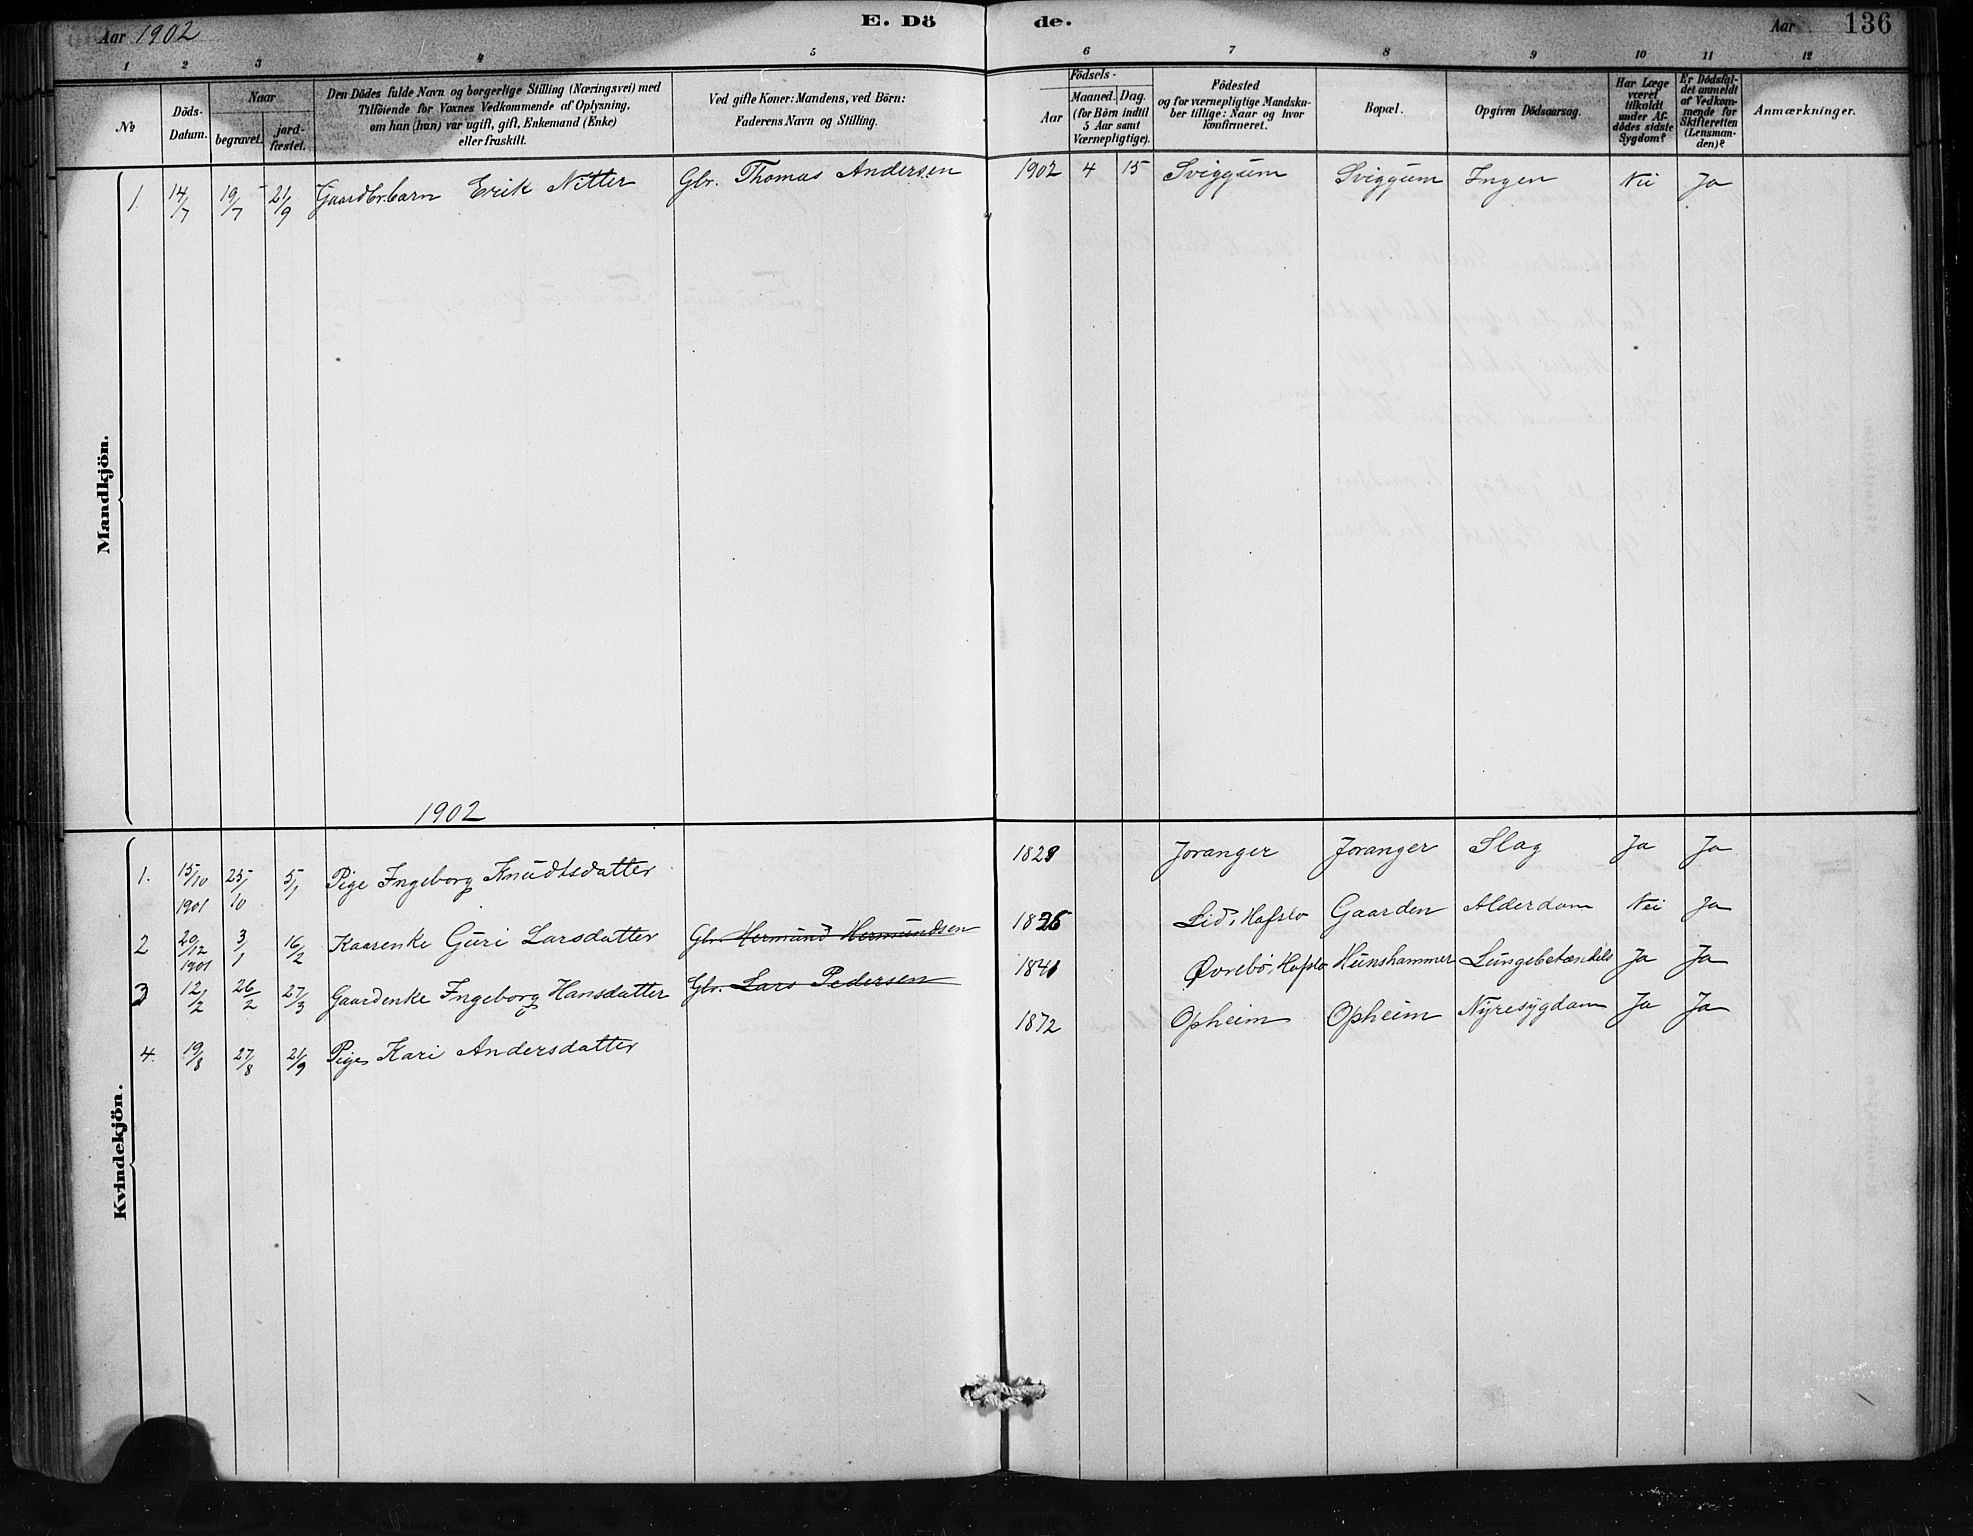 Aar 1902 E. Dö de. Aar 136
1 2 3 4 5 6 7 8 9 10 11 12
No
Döds-Datum.
Naar
begravet.
jord-fæstet.
Den Dödes fulde Navn og borgerlige Stilling (Næringsvei) med
Tilföiende for Voxnes Vedkommende af Oplysning,
om han (hun) var ugift, gift, Enkemand (Enke)
eller fraskilt.
Ved gifte Koner: Mandens, ved Börn:
Faderens Navn og Stilling.
Födsels-
Aar
Maaned. Dag.
(for Börn indtil
5 Aar samt
Værnepligtige).
Födested
og for værnepligtige Mandska-
ber tillige: Naar og hvor
konfirmeret.
Bopæl.
Opgiven Dödsaarsag.
Har Læge
været
tilkaldt
under Af-
dödes sidste
Sygdom?
Er Dödsfal-
det anmeldt
af Vedkom-
mende for
Skifteretten
(Lensman-
den)?
Anmærkninger.
Mandkjön.
1. 14/7 19/7 21/9 Gaardbr.barn Erik Nitter Gbr. Thomas Andersen 1902 4 15 Sviggum Sviggum Ingen Nei Ja
1902
Kvindekjön.
1. 15/10 1901 25/10 5/1 Pige Ingeborg Knudtsdatter 1829 Joranger Joranger Slag Ja Ja
2 20/12 1901 3/1 16/2 Kaarenke Guri Larsdatter Gbr. Hermund Hermundsen 1826 Lid, Hafslo Gaarden Alderdom Nei Ja
3 12/2 26/2 27/3 Gaardenke Ingeborg Hansdatter Gbr. Lars Pedersen 1841 Øvrebö, Hafslo Hunshammer Lungebetændels Ja Ja
4. 19/8 27/8 21/9 Pige Kari Andersdatter 1872 Opheim Opheim Nyresygdom Ja Ja